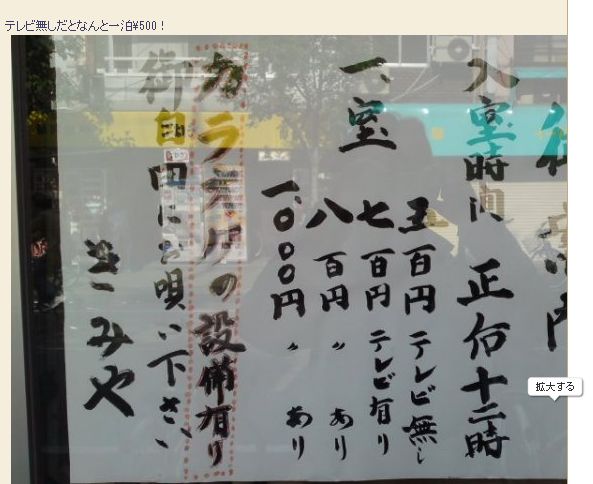 テレビ無しだとなんと一泊¥500！
御案内
入室時間 正后十二時
一、室 五百円 テレビ無し
七百円 テレビ有り
八百円 〃 あり
一、〇〇〇円 〃 あり
カラオケの設備有り
御自由にお唄い下さい
みや
拡大する